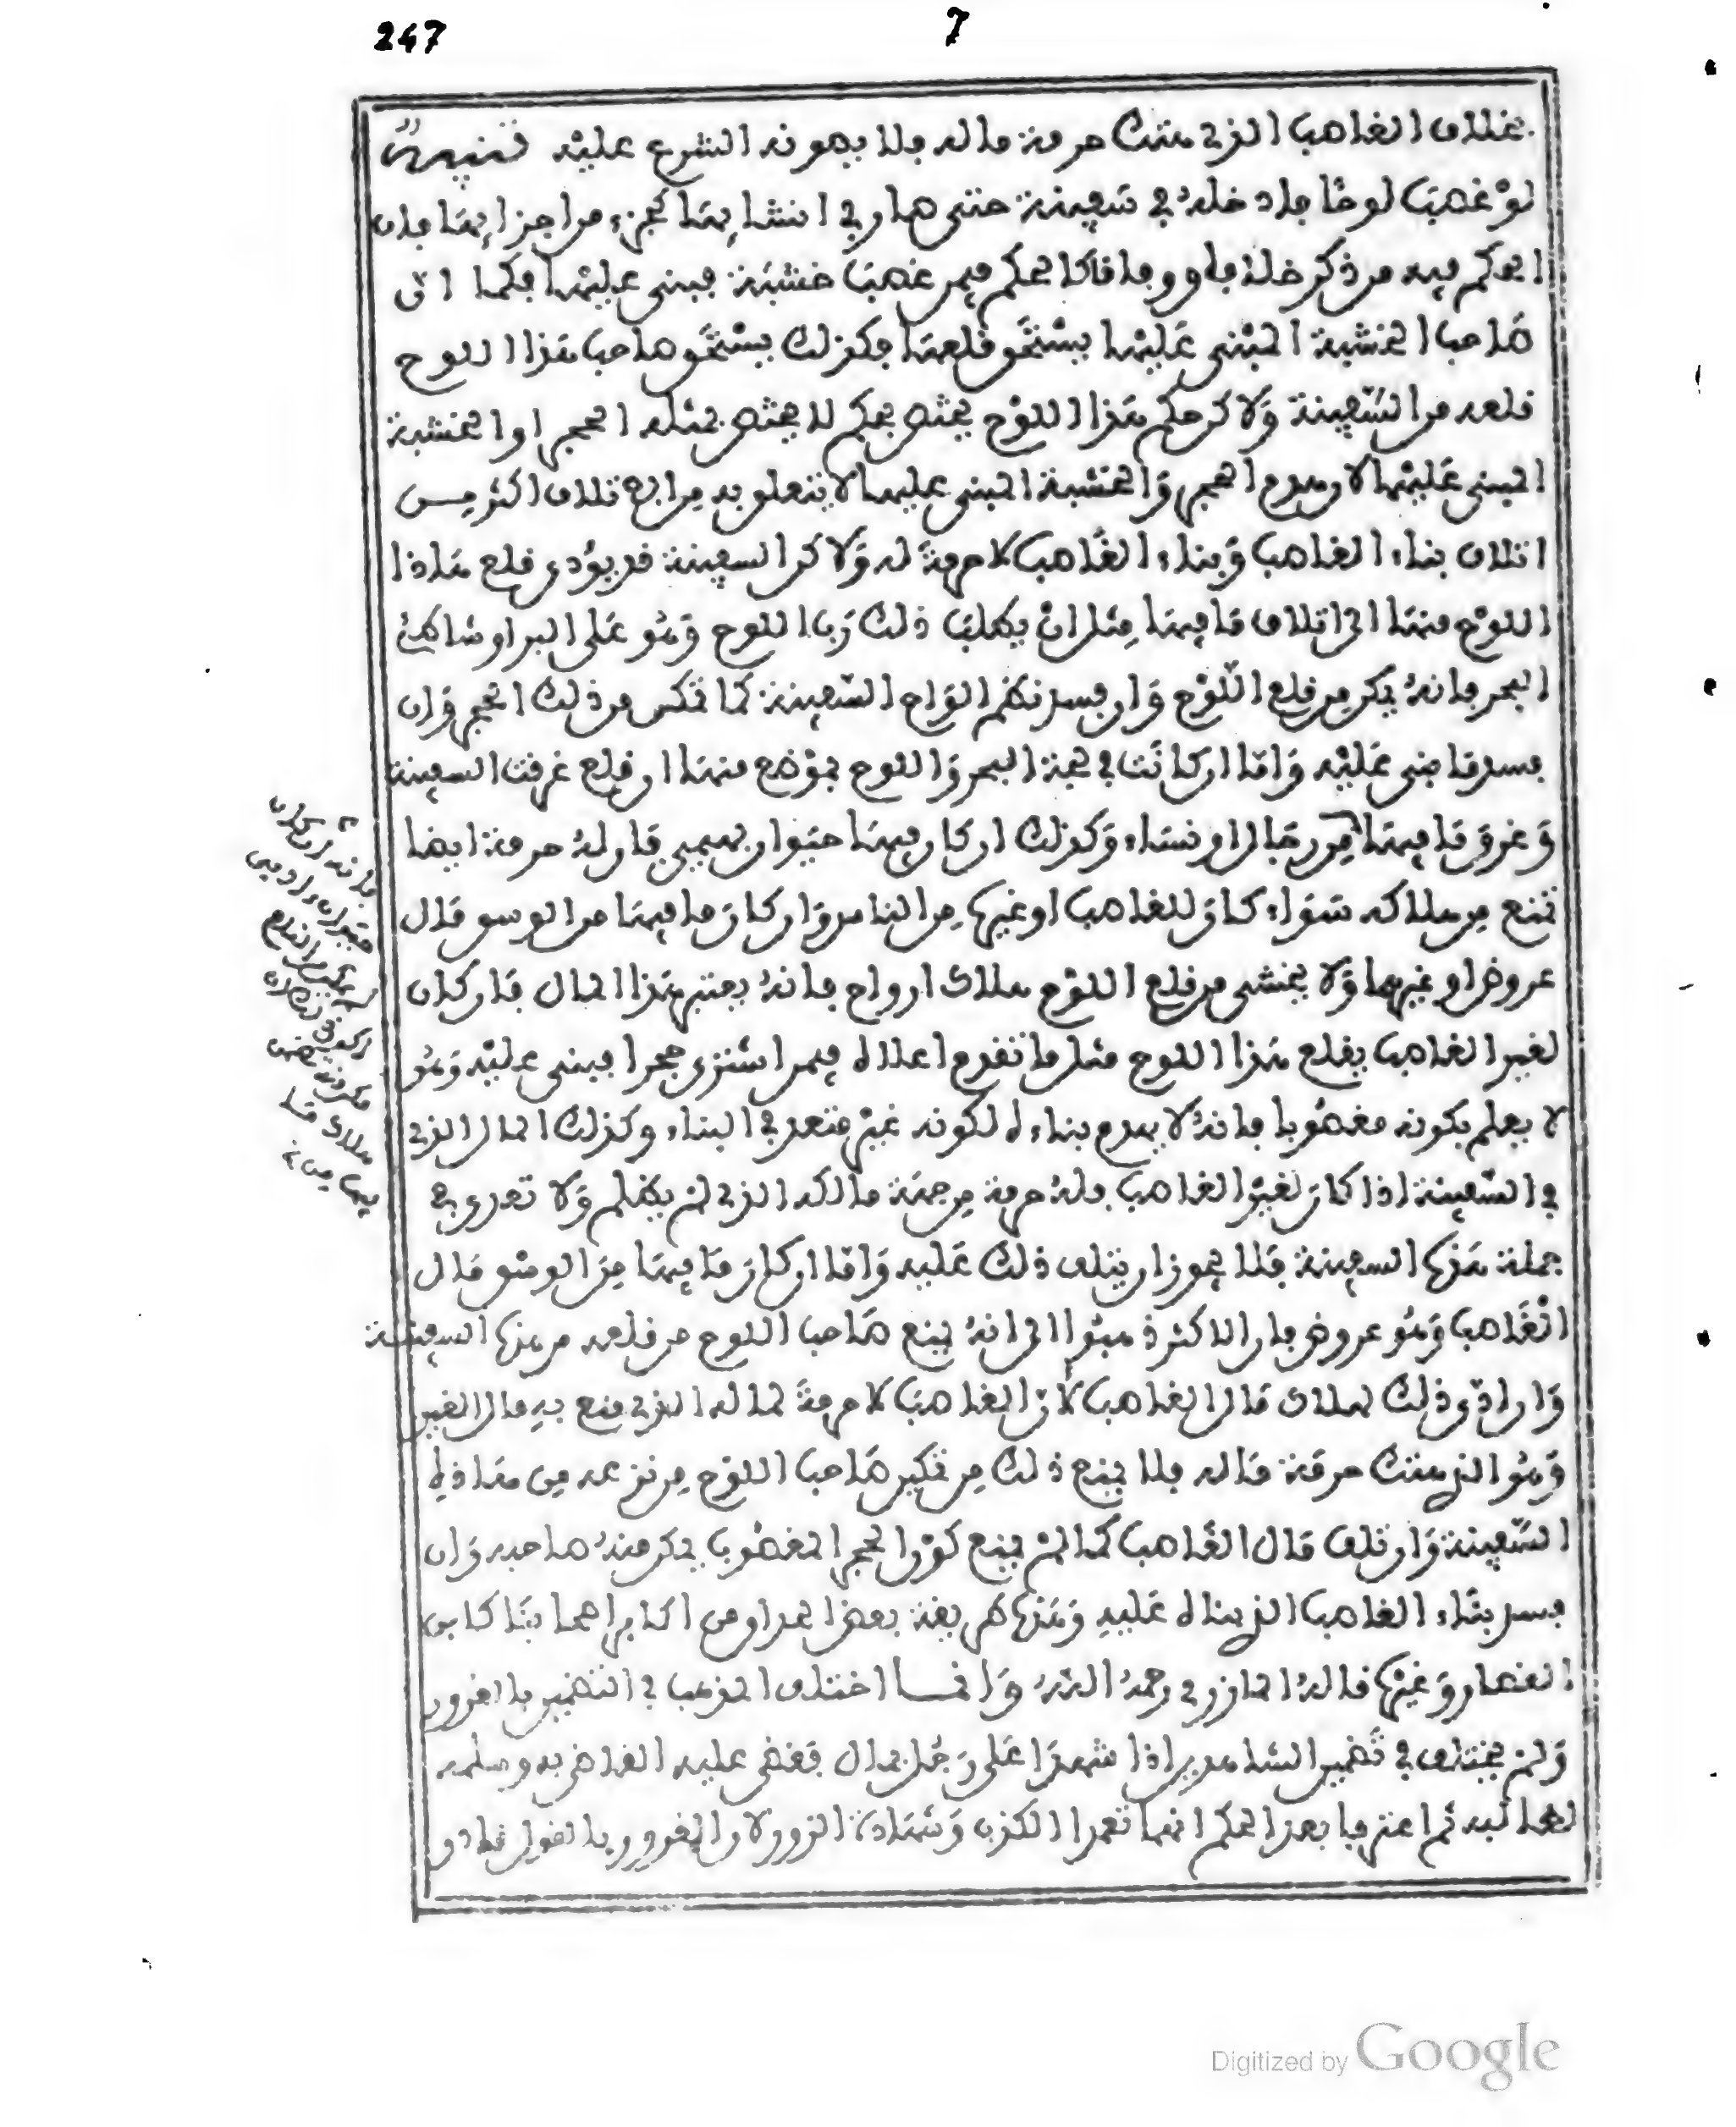 247
7
بخلاف الغاصب الذي هتك حرمة ماله فلا يصونه الشرع عليه تنبيهان
لو غصب لوحا فادخله في سفينة حتى صار في انشايها كجزء من اجزايها فان
الحكم فيه من ذكر خلافا ووفاقا كالحكم فيمن غصب خشبة فبنى عليها فكما ان
صاحب الخشبة المبنى عليها يستحق قلعها فكذلك يستحق صاحب هذا اللوح
قلعه من السفينة ولاكن حكم هذا اللوح يختص بحكم لا يختص بمثله الحجر او الخشبة
المبنى عليها لان هدم الحجر والخشبة المبنى عليها لا يتعلق به من الاتلاف اكثر من
اتلاف بناء الغاصب وبناء الغاصب لا حرمة له ولاكن السفينة قد يؤدي قلع هاذا
اللوح منها الى اتلاف ما فيها مثل ان يطلب ذلك رب اللوح وهو على البر او شاطئ
البحر فانه يمكن من قلع اللوح وان فسد نظم الواح السفينة كما تمكن من ذلك الحجر وان
فسد ما بنى عليه واما ان كانت في لجة البحر واللوح بموضع منها ان قلع غرقت السفينة
وغرق ما فيها من رجال او نساء وكذلك ان كان فيها حيوان بهيمي فان له حرمة ايضا
تمنع من هلاكه سواء كان للغاصب او غيره من الناس وان كان ما فيها من الوسق مال
عروض او غيرها ولا يخشى من قلع اللوح هلاك ارواح فانه يعتبر هذا المال فان كان
لغير الغاصب يقلع هذا اللوح مثل ما تقدم اعلاه فيمن اشترى حجرا فبنى عليه وهو
لا يعلم بكونه مغصوبا فانه لا يهدم بناءه لكونه غير متعد في البناء وكذلك المال الذي
في السفينة اذا كان لغير الغاصب فله حرمة من جهة مالكه الذي لم يظلم ولا تعدى في
جملة هذه السفينة فلا يجوز ان يتلف ذلك عليه واما ان كان ما فيها من الوسق مال
الغاصب وهو عروض فان الاكثر ذهبوا الى انه يمنع صاحب اللوح من قلعه من هذه السفينة
وان ادى ذلك لهلاك مال الغاصب لان الغاصب لا حرمة لماله الذي منع به مال الغير
وهو الذي هتك حرمة ماله فلا يمنع ذلك من تمكين صاحب اللوح من نزعه من هاذه
السفينة وان تلف مال الغاصب كما لم يمنع كون الحجر المغصوب يمكن منه صاحبه وان
فسد بناء الغاصب الذي بناه عليه وهذه طريقة بعض الحذاق من اكابر اصحابنا كابن
القصار وغيره قاله المازري رحمه الله وانما اختلف المذهب في التضمين بالغرور
ولم يختلف في تضمين الشاهدين اذا شهدا على رجل بمال فقضى عليه القاضي به وسلمه
لطالبه ثم اعترفا بعد الحكم انهما تعمدا الكذب وشهادة الزور لان الغرور بالقول
فانه ان كان